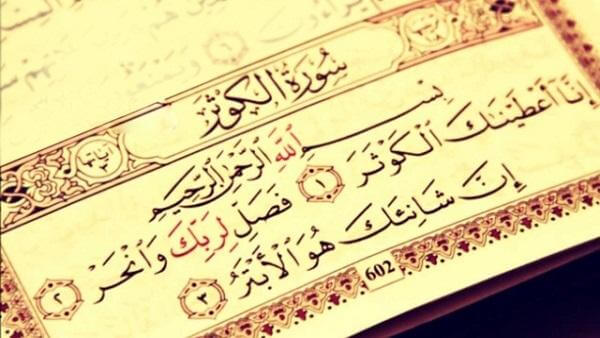 سُورَةُ الكَوْثَرِ
آياتها ٣
بِسْمِ ٱللَّهِ ٱلرَّحْمَٰنِ ٱلرَّحِيمِ
إِنَّآ أَعْطَيْنَٰكَ ٱلْكَوْثَرَ ١ فَصَلِّ لِرَبِّكَ وَٱنْحَرْ ٢
إِنَّ شَانِئَكَ هُوَ ٱلْأَبْتَرُ ٣
602